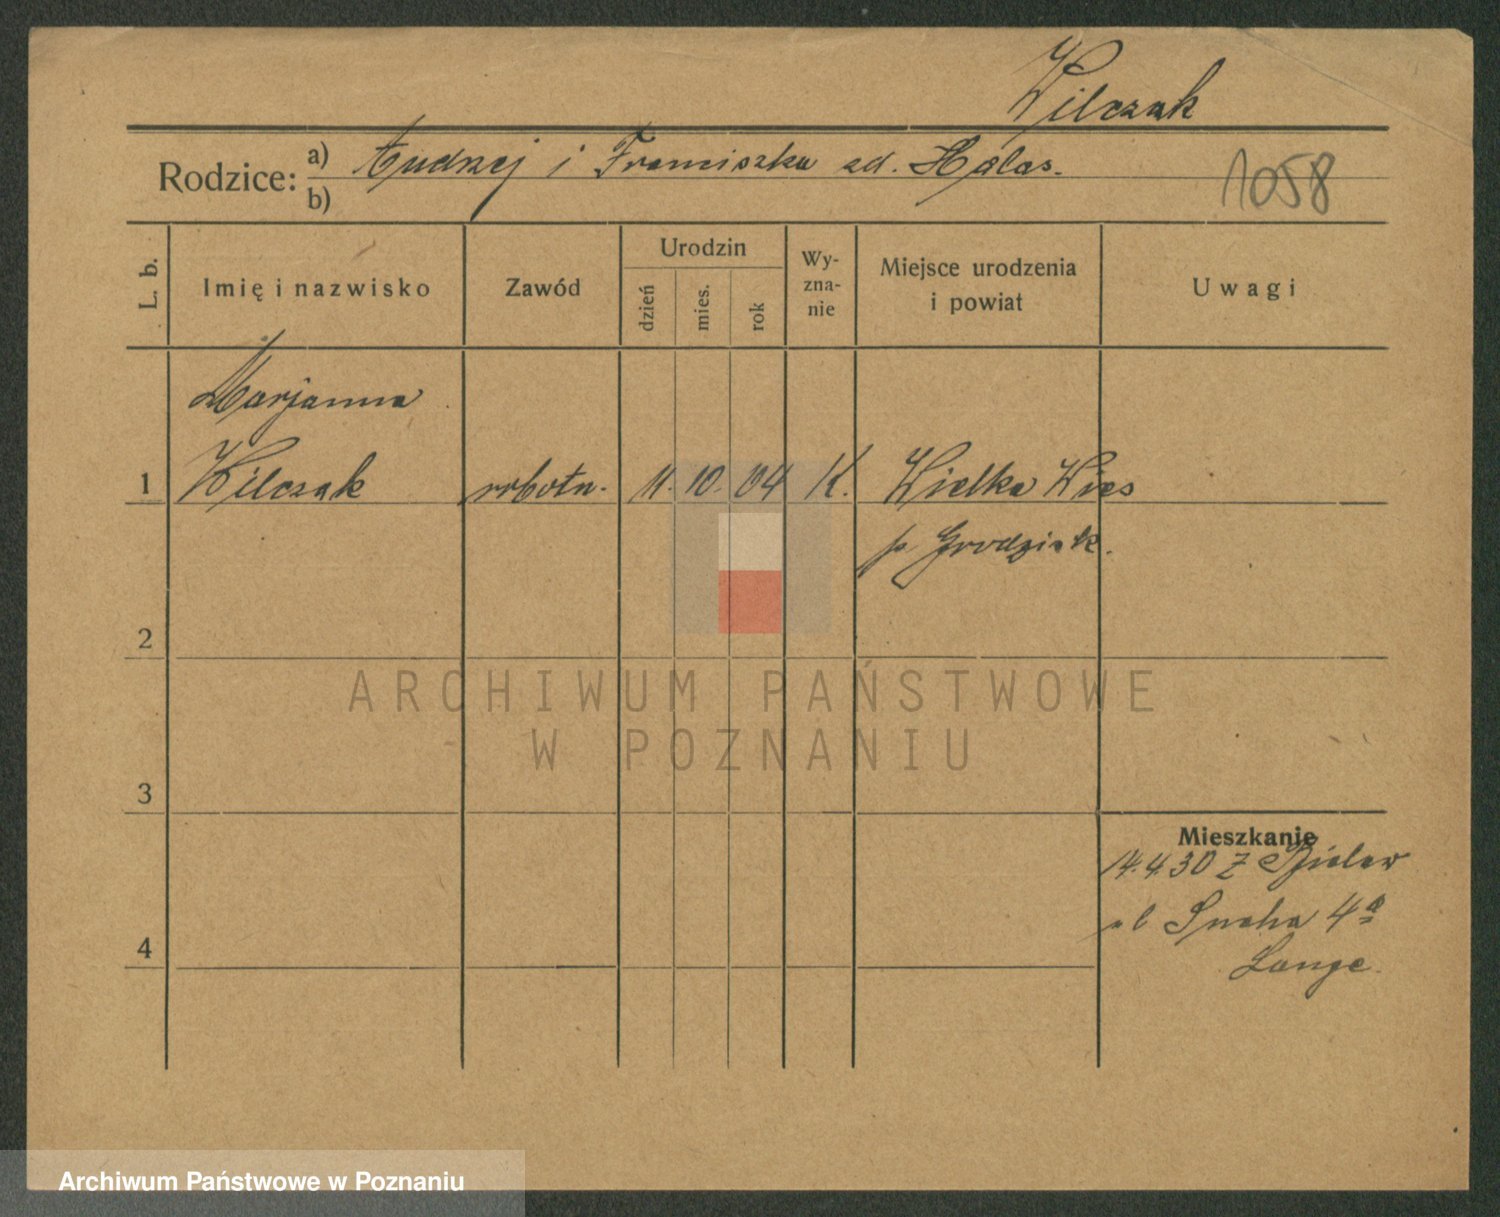 Wilczak
Rodzice: a) Andrzej i Franciszka zd. Halas.
b)
1058
L. b.
Imię i nazwisko
Zawód
Urodzin
dzień
mies.
rok
Wy-
zna-
nie
Miejsce urodzenia
i powiat
Uwagi
Marjanna
1 Wilczak robotn. 11. 10. 04 K. Wielka Wies
p. Grodzisk.
2
ARCHIWUM PAŃSTWOWE
W POZNANIU
3
Mieszkanie
14.4.30 z
4a
4
Lange.
Archiwum Państwowe w Poznaniu